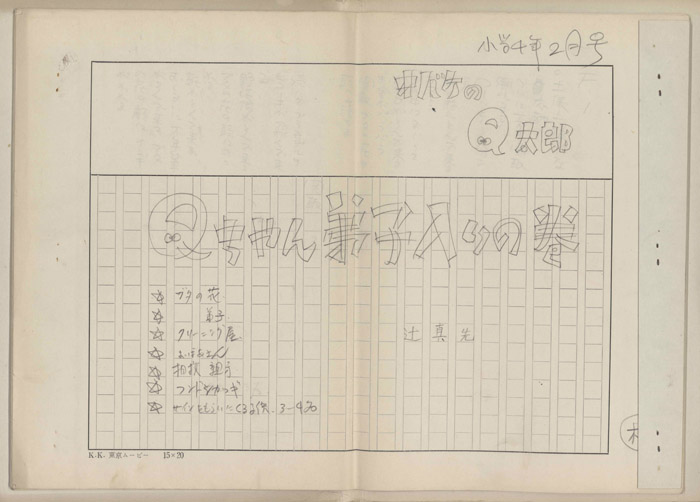 小学4年2月号
オバケの
Q太郎
Qちゃん弟子入りの巻
☆ ブタの花
弟子
☆ クリーニング屋
☆ おばあさん
☆ 相撲 親方
☆ フンドシカツギ
☆ サインをもらいにくる子供、3〜4名
辻真先
K.K. 東京ムービー 15×20